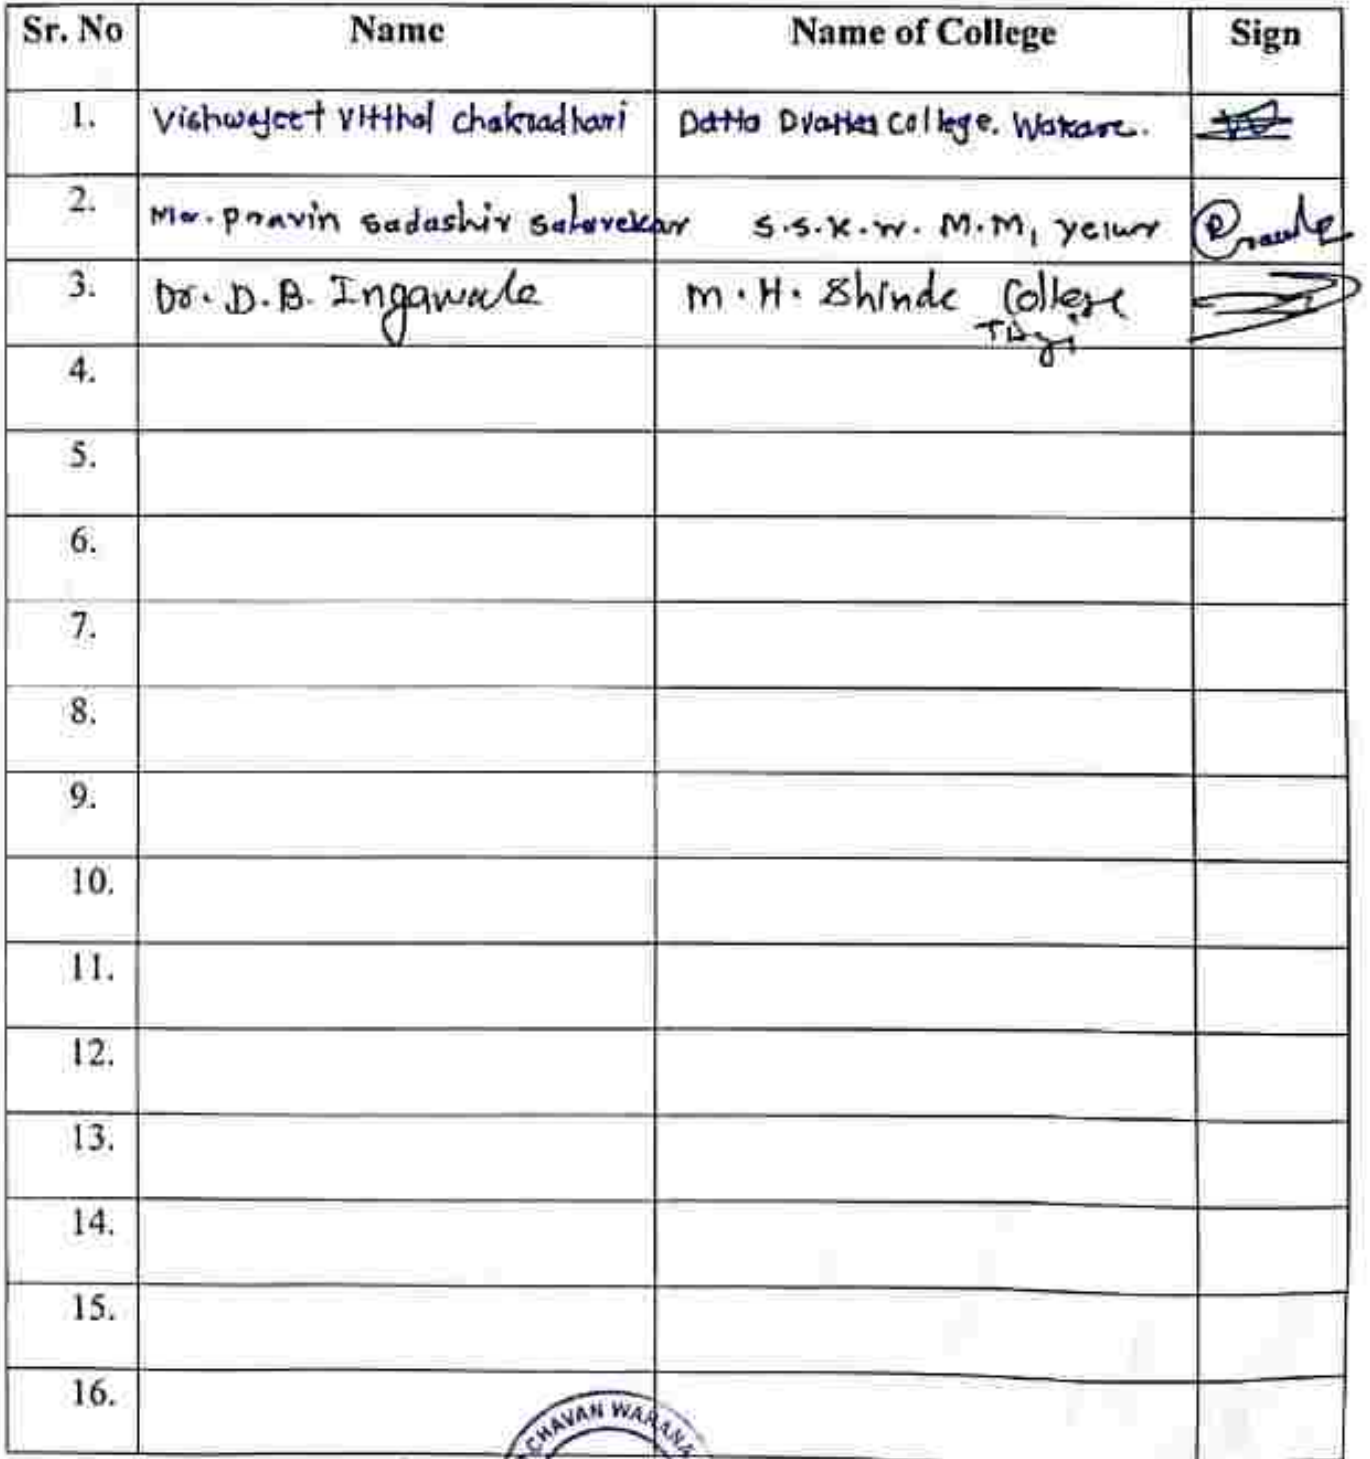 Sr. No Name Name of College Sign
1. Vishwajeet Vitthal Chakradhari Datta College. Wakare.
2. Mr. Pravin Sadashiv Salavekar S.S.K.W. M.M, Yelur
3. Dr. D.B. Ingawale M.H. Shinde College
4.
5.
6.
7.
8.
9.
10.
11.
12.
13.
14.
15.
16.
CHAVAN WARANA